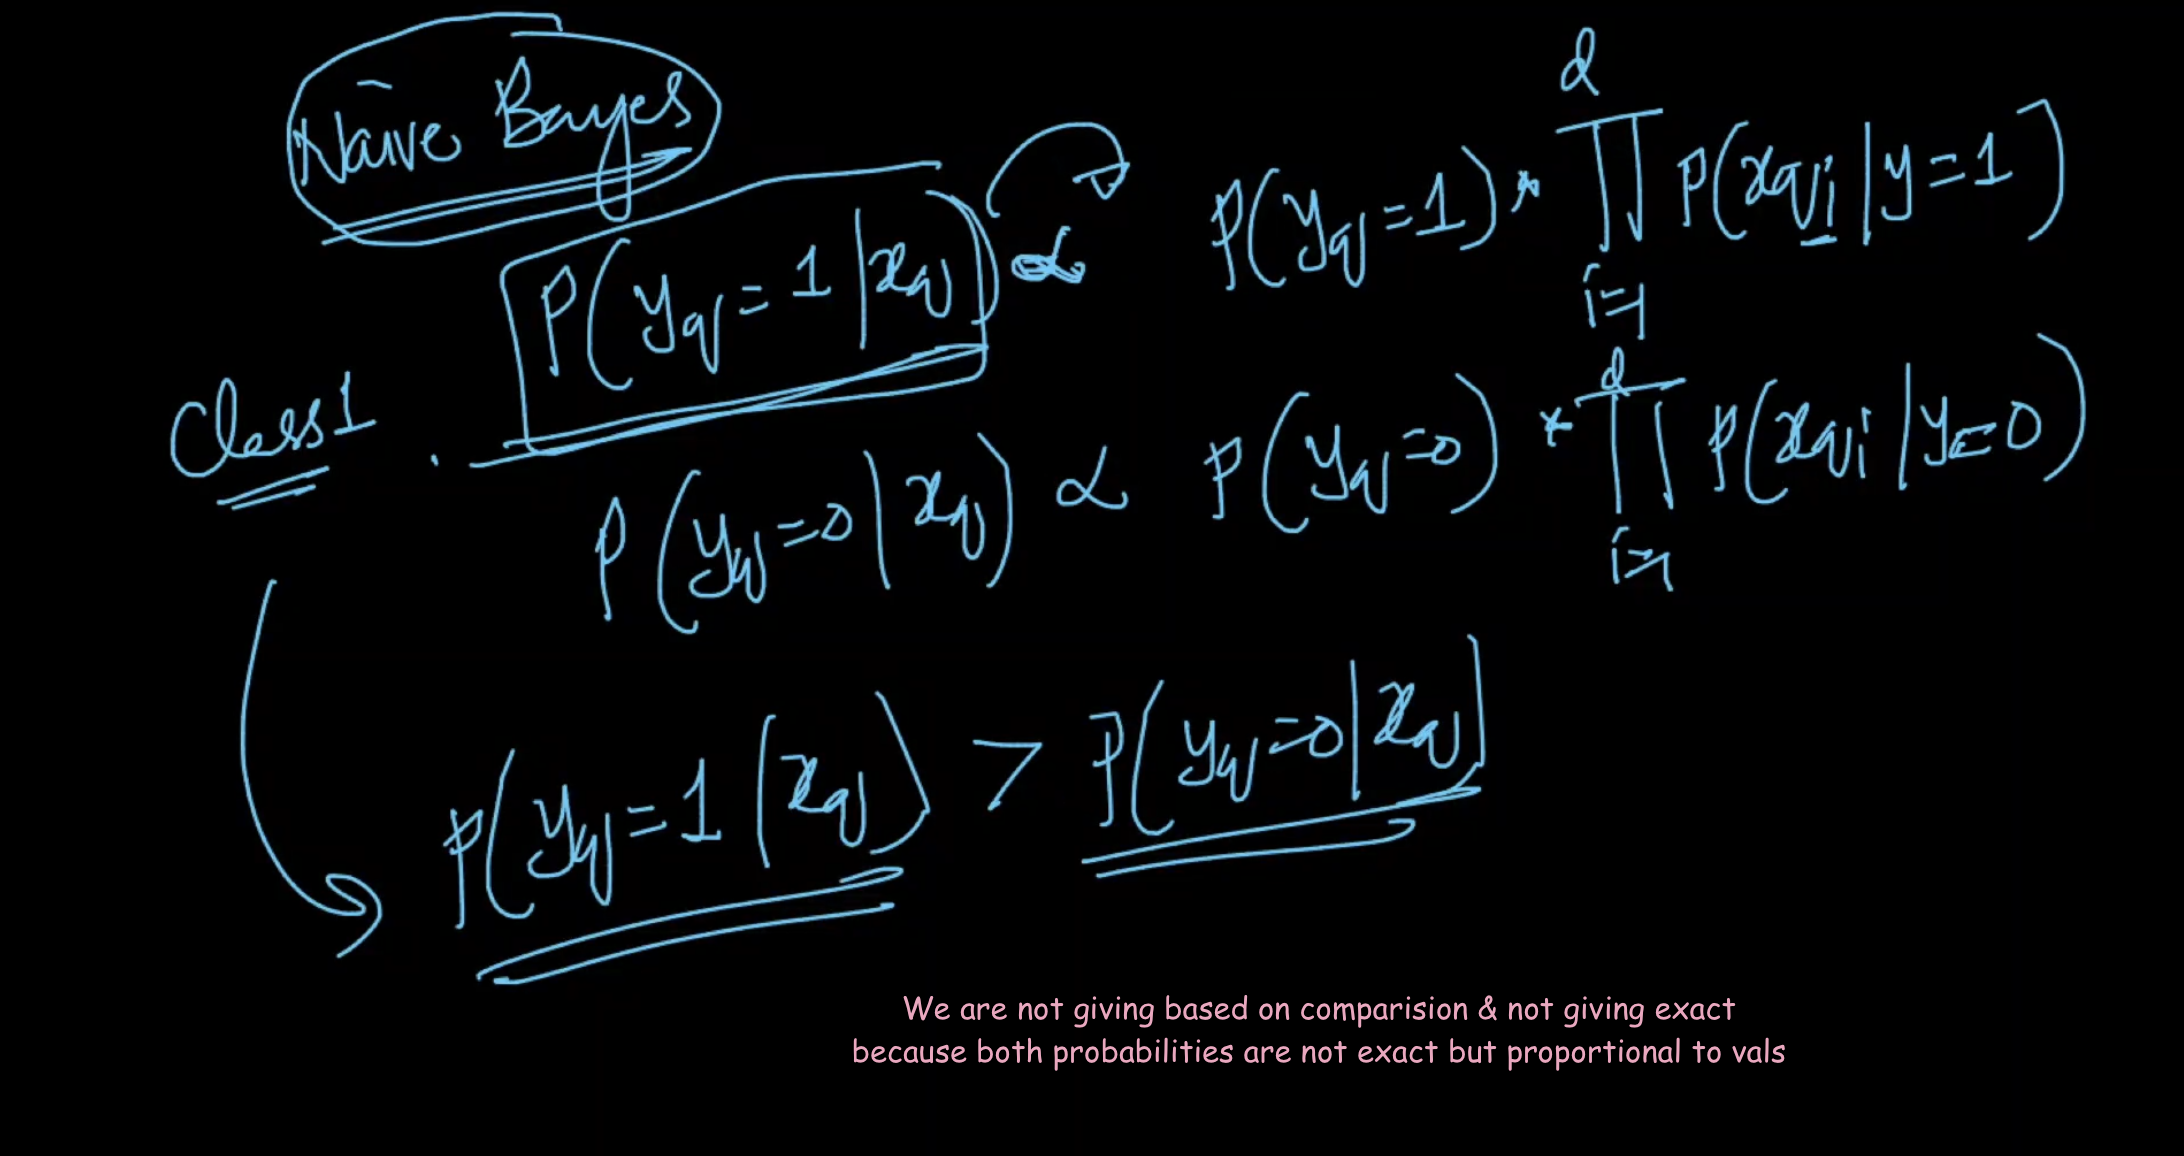 Naive Bayes
P(y_q = 1 | x_q) ∝ P(y_q = 1) * ∏_{i=1}^{d} P(x_{qi} | y = 1)
Class 1
P(y_q = 0 | x_q) ∝ P(y_q = 0) * ∏_{i=1}^{d} P(x_{qi} | y = 0)
P(y_q = 1 | x_q) > P(y_q = 0 | x_q)
We are not giving based on comparision & not giving exact
because both probabilities are not exact but proportional to vals